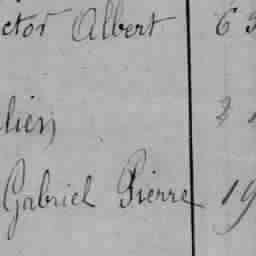 ctor Albert 6
lien
Gabriel Pierre 19